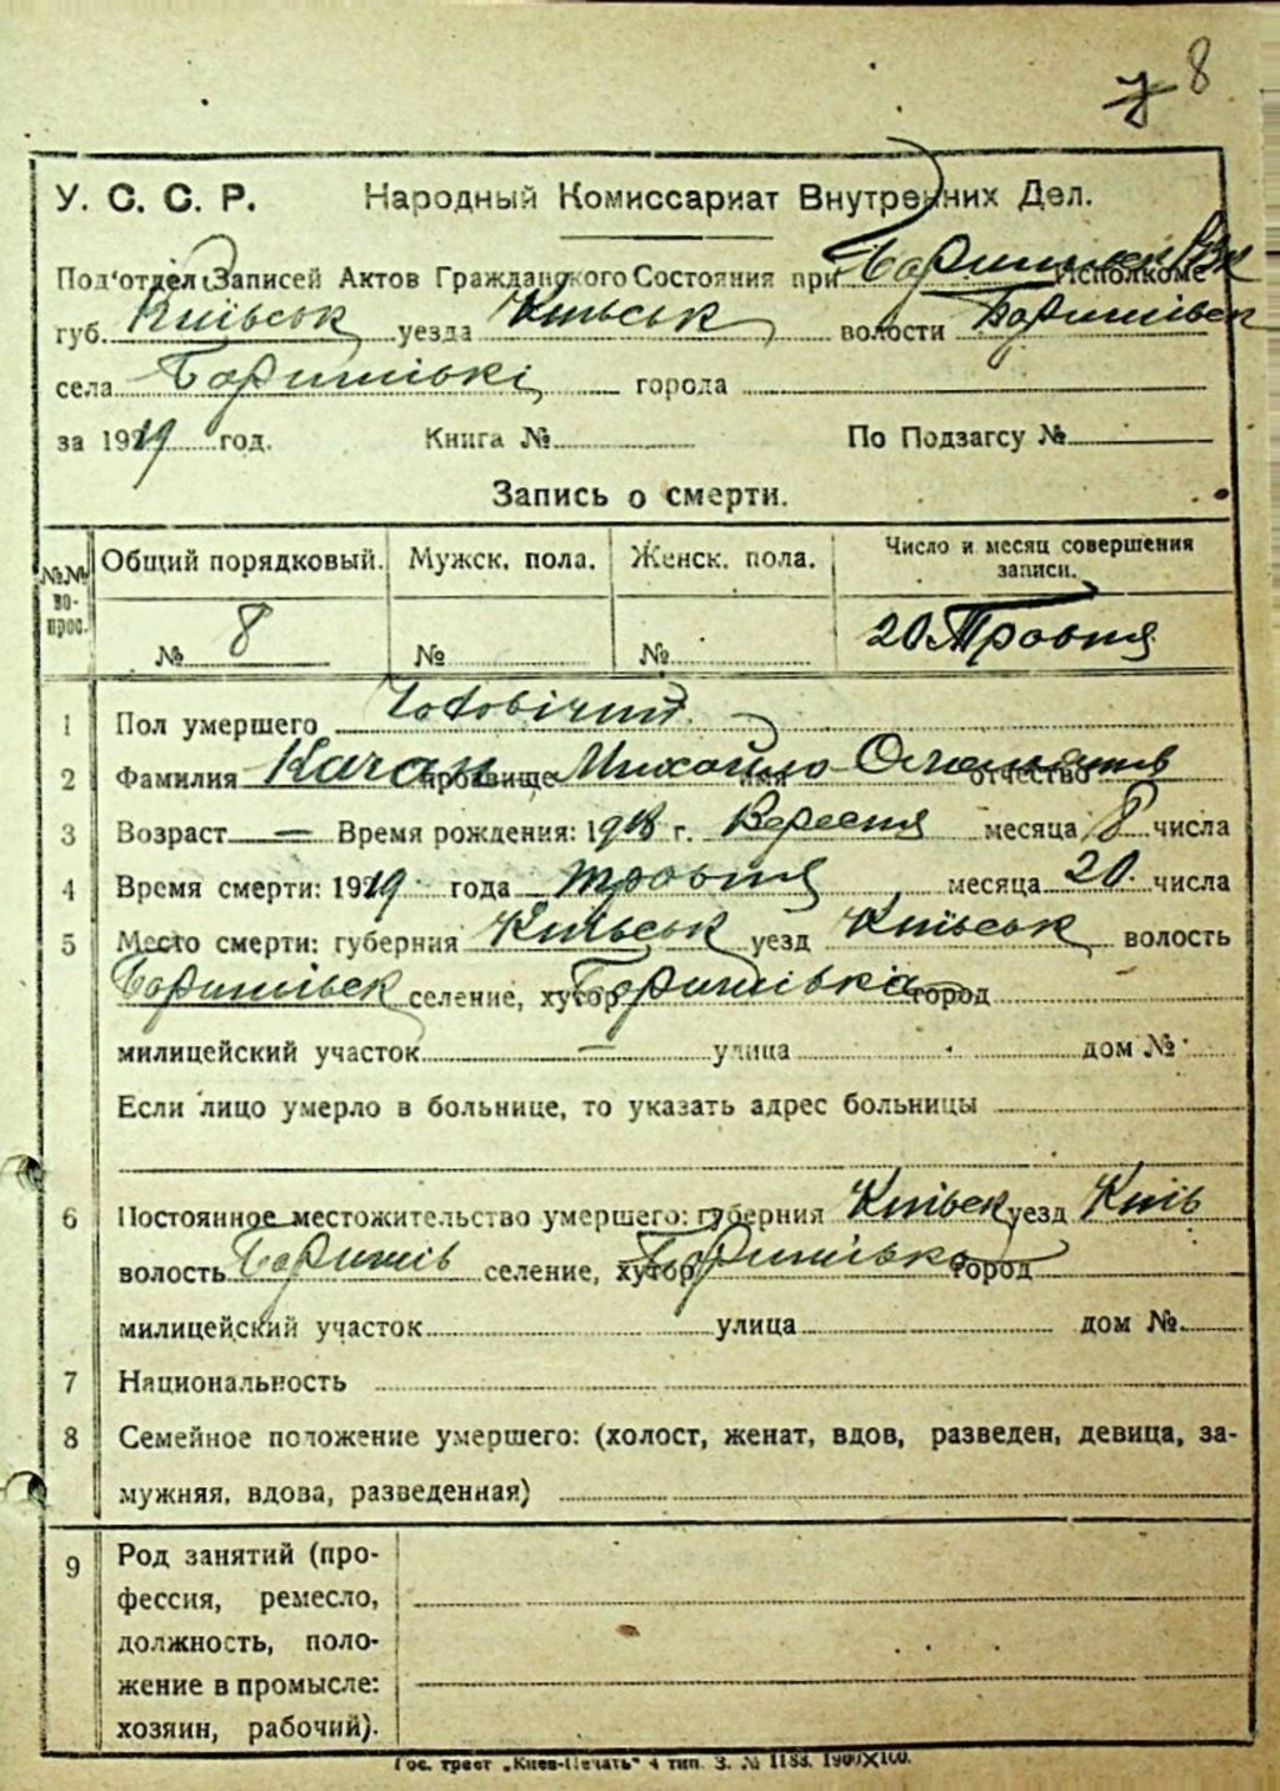 7 8
У. С. С. Р. Народный Комиссариат Внутренних Дел.
Под'отдел Записей Актов Гражданского Состояния при Исполкоме
губ. Київськ уезда Київськ волости Баришівск
села Баришівкі города
за 1919 год. Книга № По Подзагсу №
Запись о смерти.
№№ во-прос. Общий порядковый. Мужск. пола. Женск. пола. Число и месяц совершения записи.
№ 8 № № 20 Травня
1 Пол умершего Чоловічий
2 Фамилия Качан прозвище Михайло имя отчество
3 Возраст — Время рождения: 1918 г. Вересня месяца 8 числа
4 Время смерти: 1919 года травня месяца 20 числа
5 Место смерти: губерния Київськ уезд Київськ волость
Баришівск селение, хутор Баришівка город
милицейский участок — улица дом №
Если лицо умерло в больнице, то указать адрес больницы
6 Постоянное местожительство умершего: губерния Київск уезд Київ
волость Баришів селение, хутор Баришівка город
милицейский участок улица дом №
7 Национальность
8 Семейное положение умершего: (холост, женат, вдов, разведен, девица, за-
мужняя, вдова, разведенная)
9 Род занятий (про-
фессия, ремесло,
должность, поло-
жение в промысле:
хозяин, рабочий).
Гос. трест „Киев-Печать" 4 тип. З. № 1183. 1900X100.